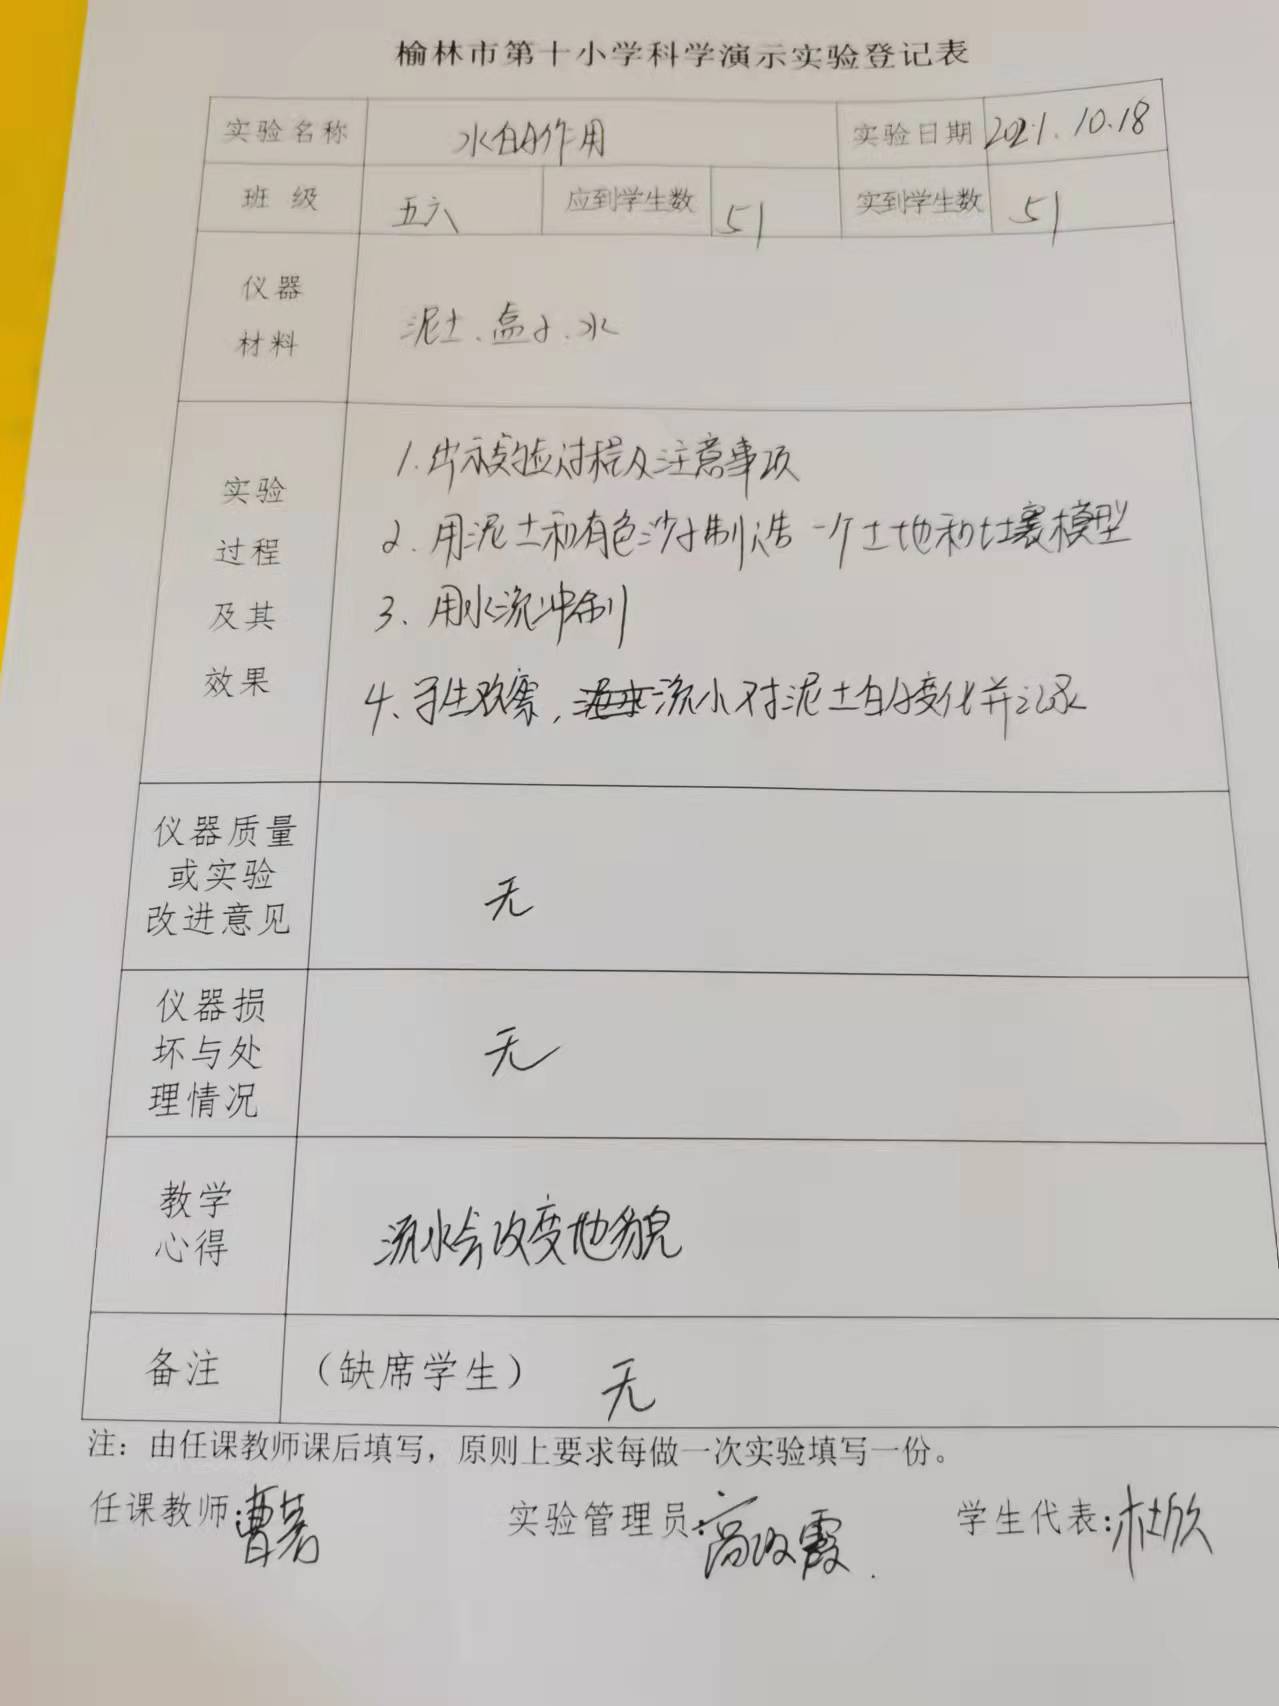 榆林市第十小学科学演示实验登记表
实验名称 水的作用 实验日期 2021.10.18
班级 五六 应到学生数 51 实到学生数 51
仪器
材料
泥土、盒子、水
实验
过程
及其
效果
1.出示实验过程及注意事项
2.用泥土和有色沙子制造一个土地和土壤模型
3、用水流冲刷
4、学生观察,流小对泥土的变化并记录
仪器质量
或实验
改进意见
无
仪器损
坏与处
理情况
无
教学
心得
流水会改变地貌
备注 (缺席学生) 无
注:由任课教师课后填写,原则上要求每做一次实验填写一份。
任课教师:曹芳 实验管理员:高改霞. 学生代表:杜欣